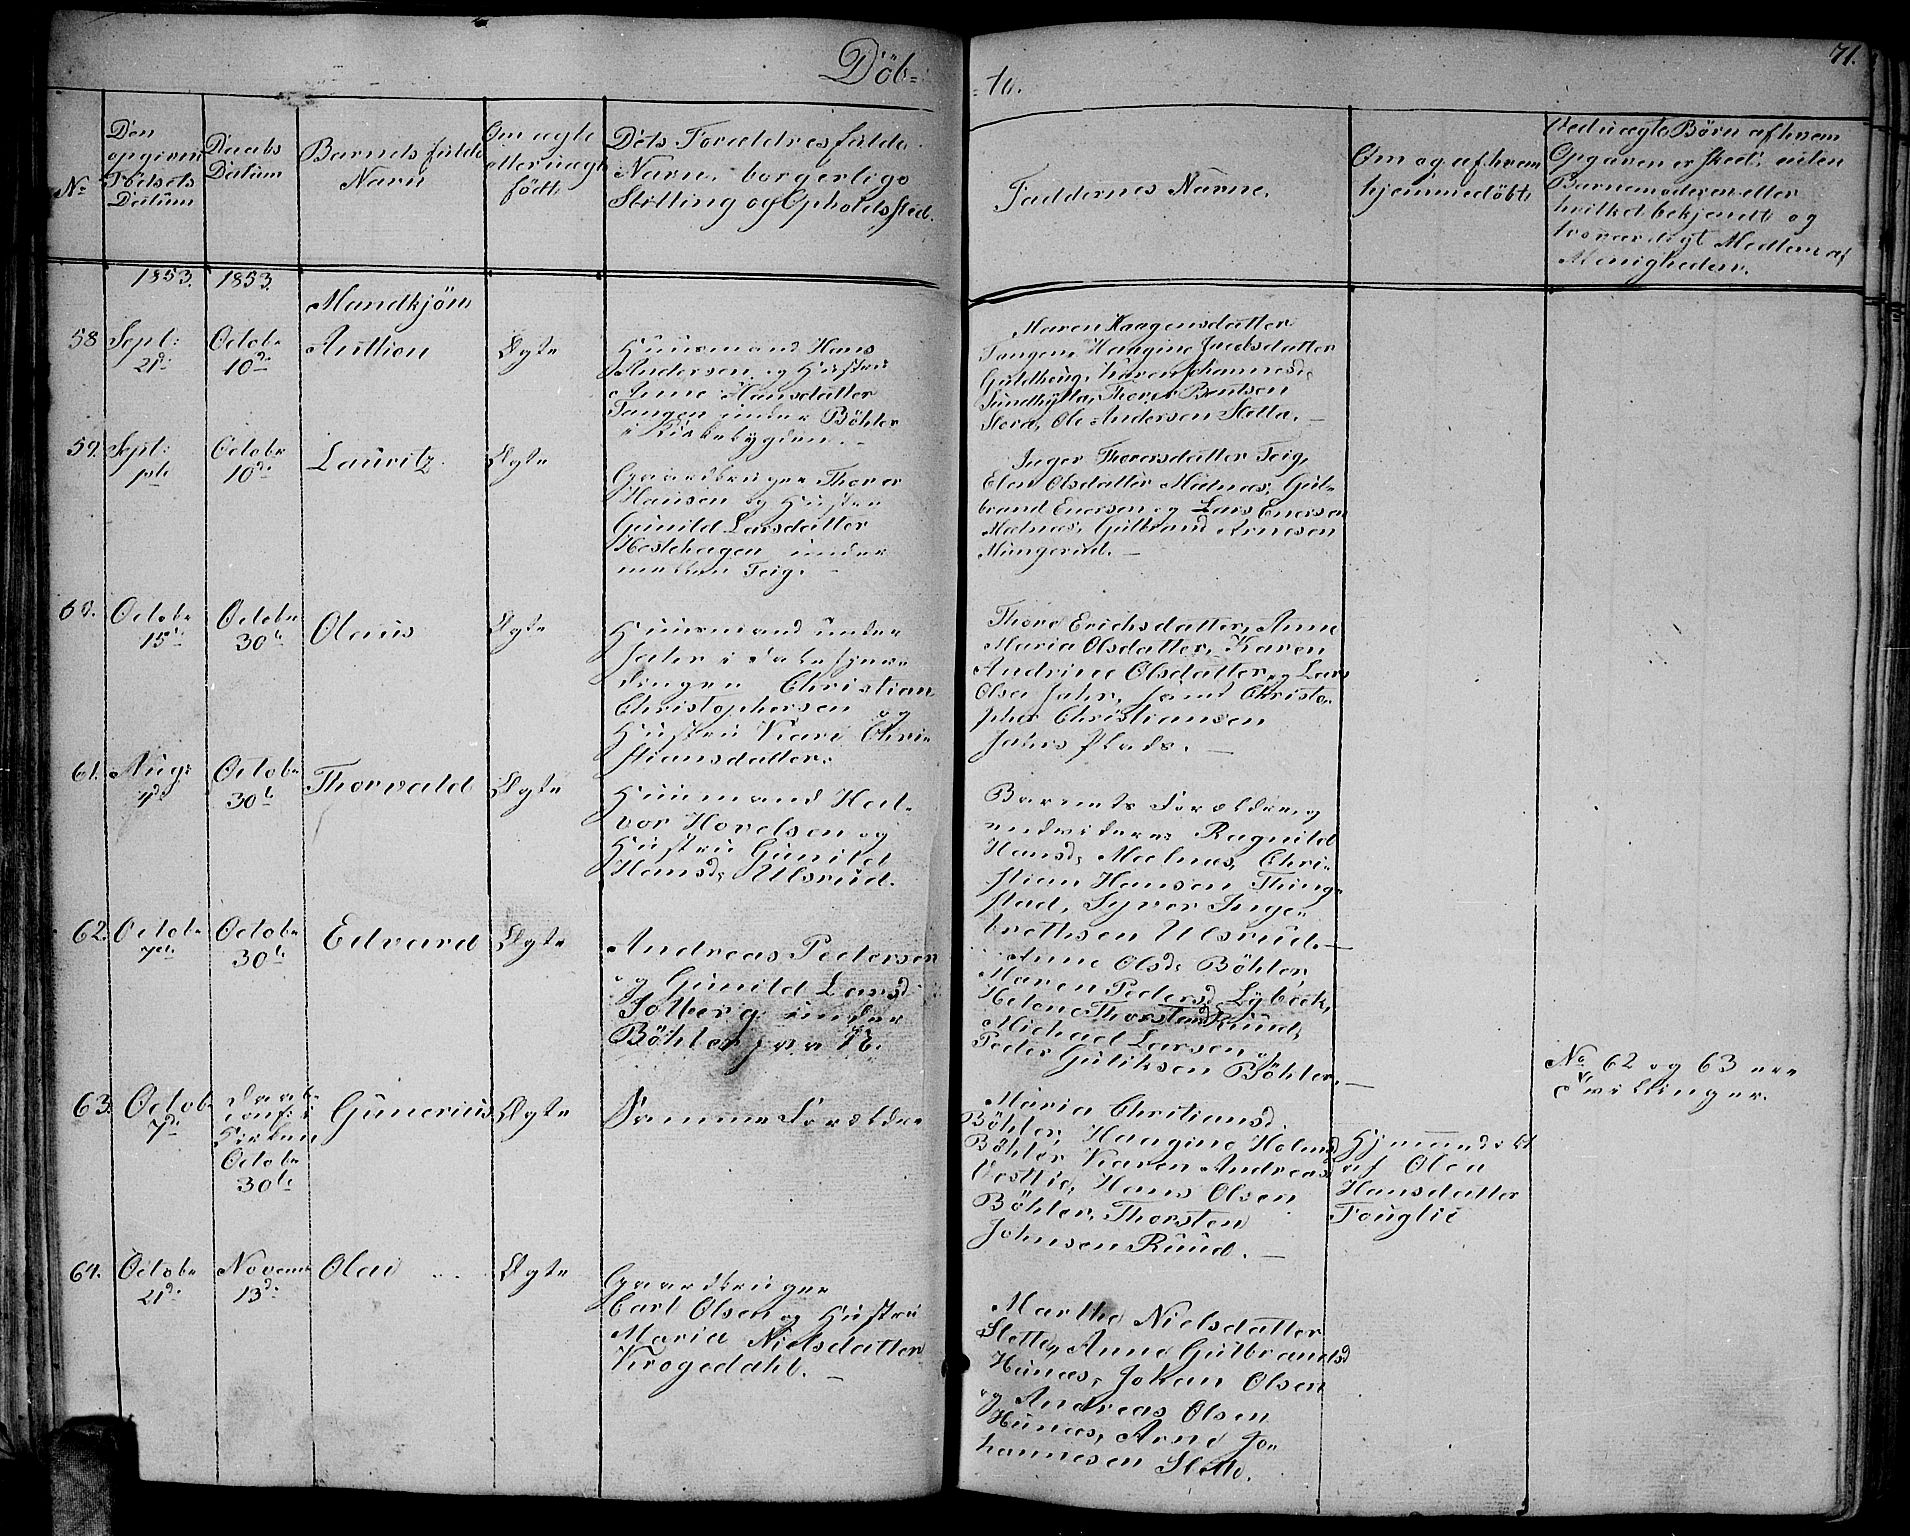 Döb-
-te.
71.
No
Den
opgivne
Fødsels
Datum
Daabs
Datum
Barnets fulde
Navn
Om ægte
eller uægte
født
Dets Forældres fulde
Navne, borgerlige
Stilling og Opholdssted.
Faddernes Navne.
Om og af hvem
hjemmedøbt
Ved uægte Børn af hvem
Opgaven er skeet; enten
Barnemoderen eller
hvilket bekjendt og
troværdigt Medlem af
Menigheden.
1853.
1853.
Mandkjön
58
Sept:
21de
Octobr
10de
Anttion
Ægte
Huusmand Hans
Andersen og Hustru
Anne Hansdatter
Tangen under Böhler
i Kirkebygden.
Maren Haagensdatter
Tangen, Haagine Jacobsdatter
Guldhaug, Karen Johannesd.
Sundhytta, Thorer Bentsen
Slora, Ole Andersen Sletta.
59.
Sept:
Octobr
10de
Lauritz
Ægte
Gaardbruger Thorer
Hansen og Hustru
Gunild Larsdatter
Hestehagen under
mellem Teig.
Inger Thorersdatter Teig,
Elen Olsdatter Mælnæs, Gul-
brand Enersen og Lars Enersen
Mælnæs, Gulbrand Arnesen
Mangerud.
60.
Octobr
15de
Octobr
30te
Olaus
Ægte
Huusmand under
Christian
Christophersen og
Hustru Kari Chri-
stiansdatter.
Thore Erichsdatter, Anne
Maria Olsdatter, Karen
Andrine Olsdatter og Lars
Olsen Jahr, samt Christo-
pher Christiansen
Jahrs Plads.
61.
Aug:
4de
Octobr
30te
Thorvald
Ægte
Huusmand Hal-
vor Hovelsen og
Hustru Gunild
Hansd. Ulsrud.
Barnets Forældre og
endvidere Ragnild
Hansd. Mælnæs, Chri-
stian Hansen Thing-
stad, Syver Inge-
brethsen Ulsrud.
62.
Octobr
7de
Octobr
30te
Edvard
Ægte
Andreas Pedersen
og Gunild Larsd.
Solberg under
Böhler
Anne Olsd. Böhler,
Maren Pedersd. Lybeck,
Helene Thorstensd. Ruud,
Michael Larsen og
Peder Guliksen Böhler.
No 62 og 63 ere
Tvillinger.
63.
Octob
7de
Daabs
conf: i
Kirken
Octobr
30te
Gunerius
Ægte
Samme Forældre
Maria Christiansd.
Böhler, Haagine Holmsd.
Böhler, Karen Andreasd.
Vestlie, Hans Olsen
Böhler, Thorsten
Johnsen Ruud.
Hjemmedøbt
af Olea
Hansdatter
Fouglie
64.
Octobr
21de
Novemb
13de
Olai
Ægte
Gaardbruger
Carl Olsen og Hustru
Maria Nielsdatter
Krogedahl.
Marthe Nielsdatter
Slette, Anne Gulbrandsd
Hunæs, Johan Olsen
og Andreas Olsen
Hunæs, Arne Jo-
hannesen Slette.